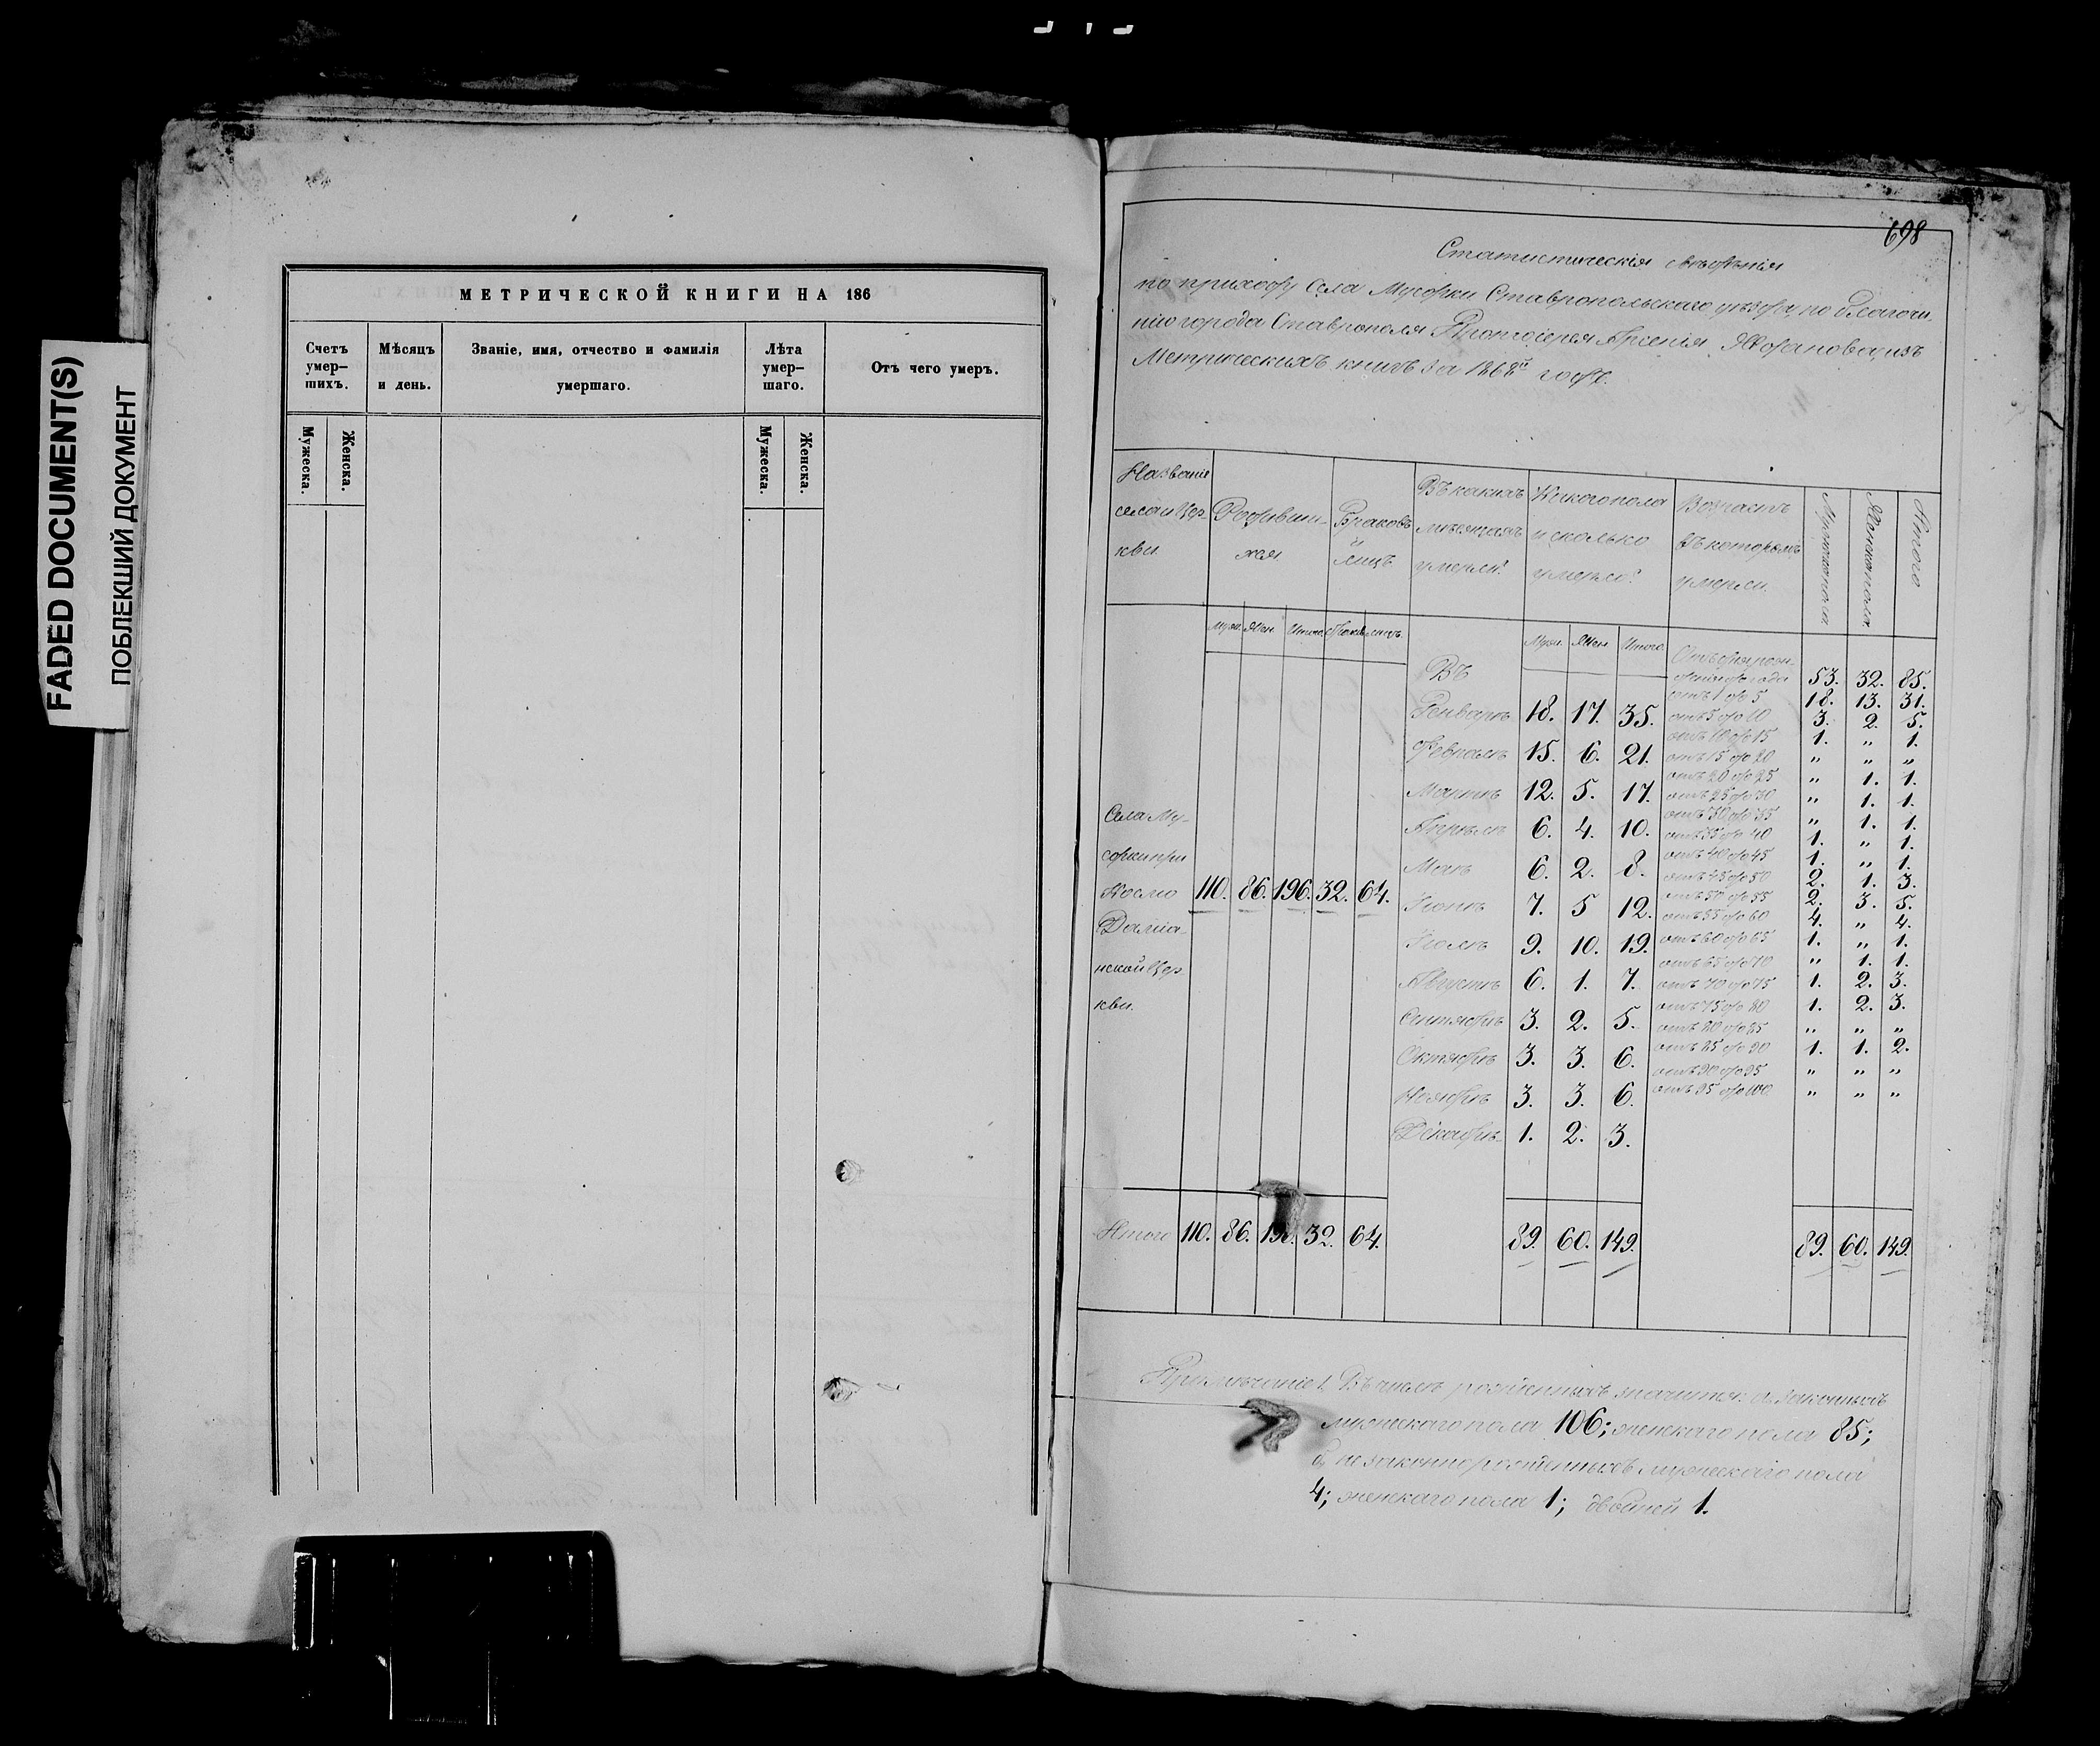 FADED DOCUMENT(S)
ПОБЛЕКШИЙ ДОКУМЕНТ
МЕТРИЧЕСКОЙ КНИГИ НА 186
Счетъ умер—шихъ.
Мѣсяцъ и день.
Званіе, имя, отчество и фамилія умершаго.
Лѣта умер—шаго.
Отъ чего умеръ.
Мужеска. Женска. Мужеска. Женска.
698
Статистическія свѣдѣнія
по приходу села Мусорки Ставропольскаго уѣзда, по благочи-
нію города Ставрополя Протоіерея Арсенія из
Метрическихъ книгъ за 1868й годъ.
Названіе села и Цер-кви.
Родивши-хся
Браковъ и лицъ
Въ какихъ мѣсяцахъ умерли?
Какого пола и сколько умерло?
Возрастъ въ которомъ умерли.
Мужска пола
Женска пола
Итого
Муж. Жен. Итого. Браков. лицъ.
Муж. Жен. Итого.
Села Му-
сорки при
Космо
Даміа-
нской Цер
кви.
110. 86. 196. 32. 64.
Въ
Генварѣ 18. 17. 35.
Февралѣ 15. 6. 21.
Мартѣ 12. 5. 17.
Апрѣлѣ 6. 4. 10.
Маѣ 6. 2. 8.
Іюнѣ 7. 5 12.
Іюлѣ 9. 10. 19.
Августѣ 6. 1. 7.
Сентябрѣ 3. 2. 5.
Октябрѣ 3. 3. 6.
Ноябрѣ 3. 3. 6.
Декабрѣ 1. 2. 3.
Отъ дня рож-
денія до года 53. 32. 85.
отъ 1 до 5 18. 13. 31.
отъ 5 до 10 3. 2. 5.
отъ 10 до 15 1. " 1.
отъ 15 до 20 " " "
отъ 20 до 25 " 1. 1.
отъ 25 до 30 " 1. 1.
отъ 30 до 35 " 1. 1.
отъ 35 до 40 1. " 1.
отъ 40 до 45 1. " 1.
отъ 45 до 50 2. 1. 3.
отъ 50 до 55 2. 3. 5.
отъ 55 до 60 4. " 4.
отъ 60 до 65 1. " 1.
отъ 65 до 70 " 1. 1.
отъ 70 до 75 1. 2. 3.
отъ 75 до 80 1. 2. 3.
отъ 80 до 85 " " "
отъ 85 до 90 1. 1. 2.
отъ 90 до 95 " " "
отъ 95 до 100. " " "
Итого 110. 86. 196. 32. 64. 89. 60. 149. 89. 60. 149.
Примѣчаніе 1. Въ числѣ рожденныхъ значится: а, законныхъ
мужескаго пола 106; женскаго пола 85;
б, незаконнорожденныхъ мужескаго пола
4; женскаго пола 1; двойней 1.